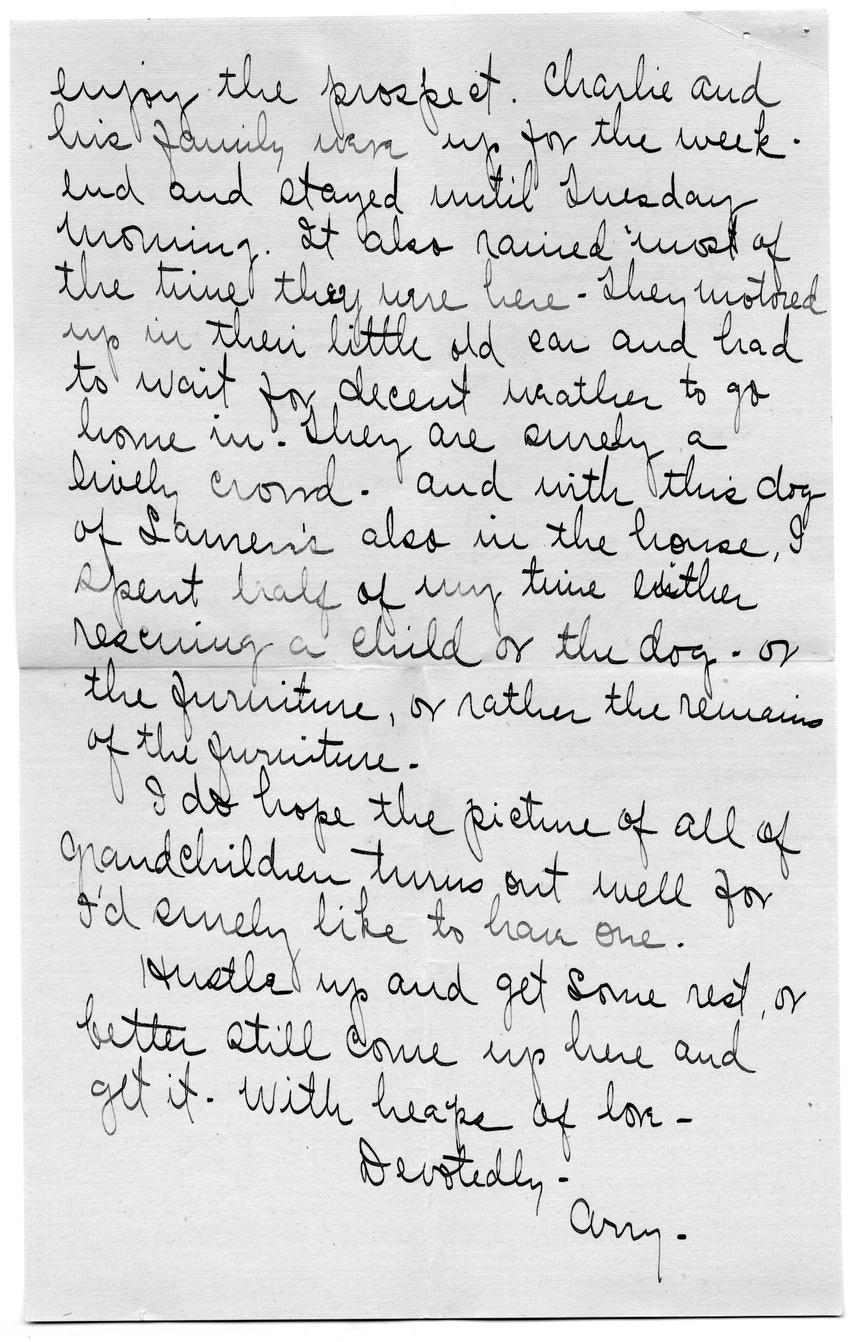 enjoy the prospect. Charlie and
his family were up for the week-
end and stayed until Tuesday
morning. It also rained 'most of
the time they were here - They motored
up in their little old car and had
to wait for decent weather to go
home in. They are surely a
lively crowd - and with this dog
of Lauren's also in the house, I
spent half of my time either
rescuing a child or the dog - or
the furniture, or rather the remains
of the furniture.
I do hope the picture of all of
grandchildren turns out well for
I'd surely like to have one.
Hustle up and get some rest, or
better still come up here and
get it. With heaps of love -
Devotedly -
Arry.